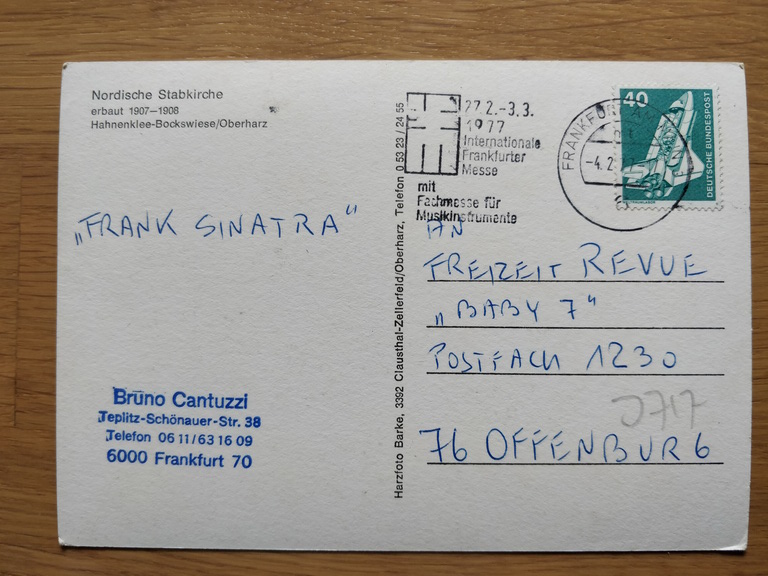 Nordische Stabkirche
erbaut 1907—1908
Hahnenklee-Bockswiese/Oberharz
„FRANK SINATRA“
Bruno Cantuzzi
Teplitz-Schönauer-Str. 38
Telefon 06 11/63 16 09
6000 Frankfurt 70
Harzfoto Barke, 3392 Clausthal-Zellerfeld/Oberharz, Telefon 0 53 23 / 24 55
27.2.-3.3.
1977
Internationale
Frankfurter
Messe
mit
Fachmesse für
Musikinstrumente
FRANKFURT
-4.2
40
DEUTSCHE BUNDESPOST
AN
FREIZEIT REVUE
„BABY 7“
POSTFACH 1230
J717
76 OFFENBURG